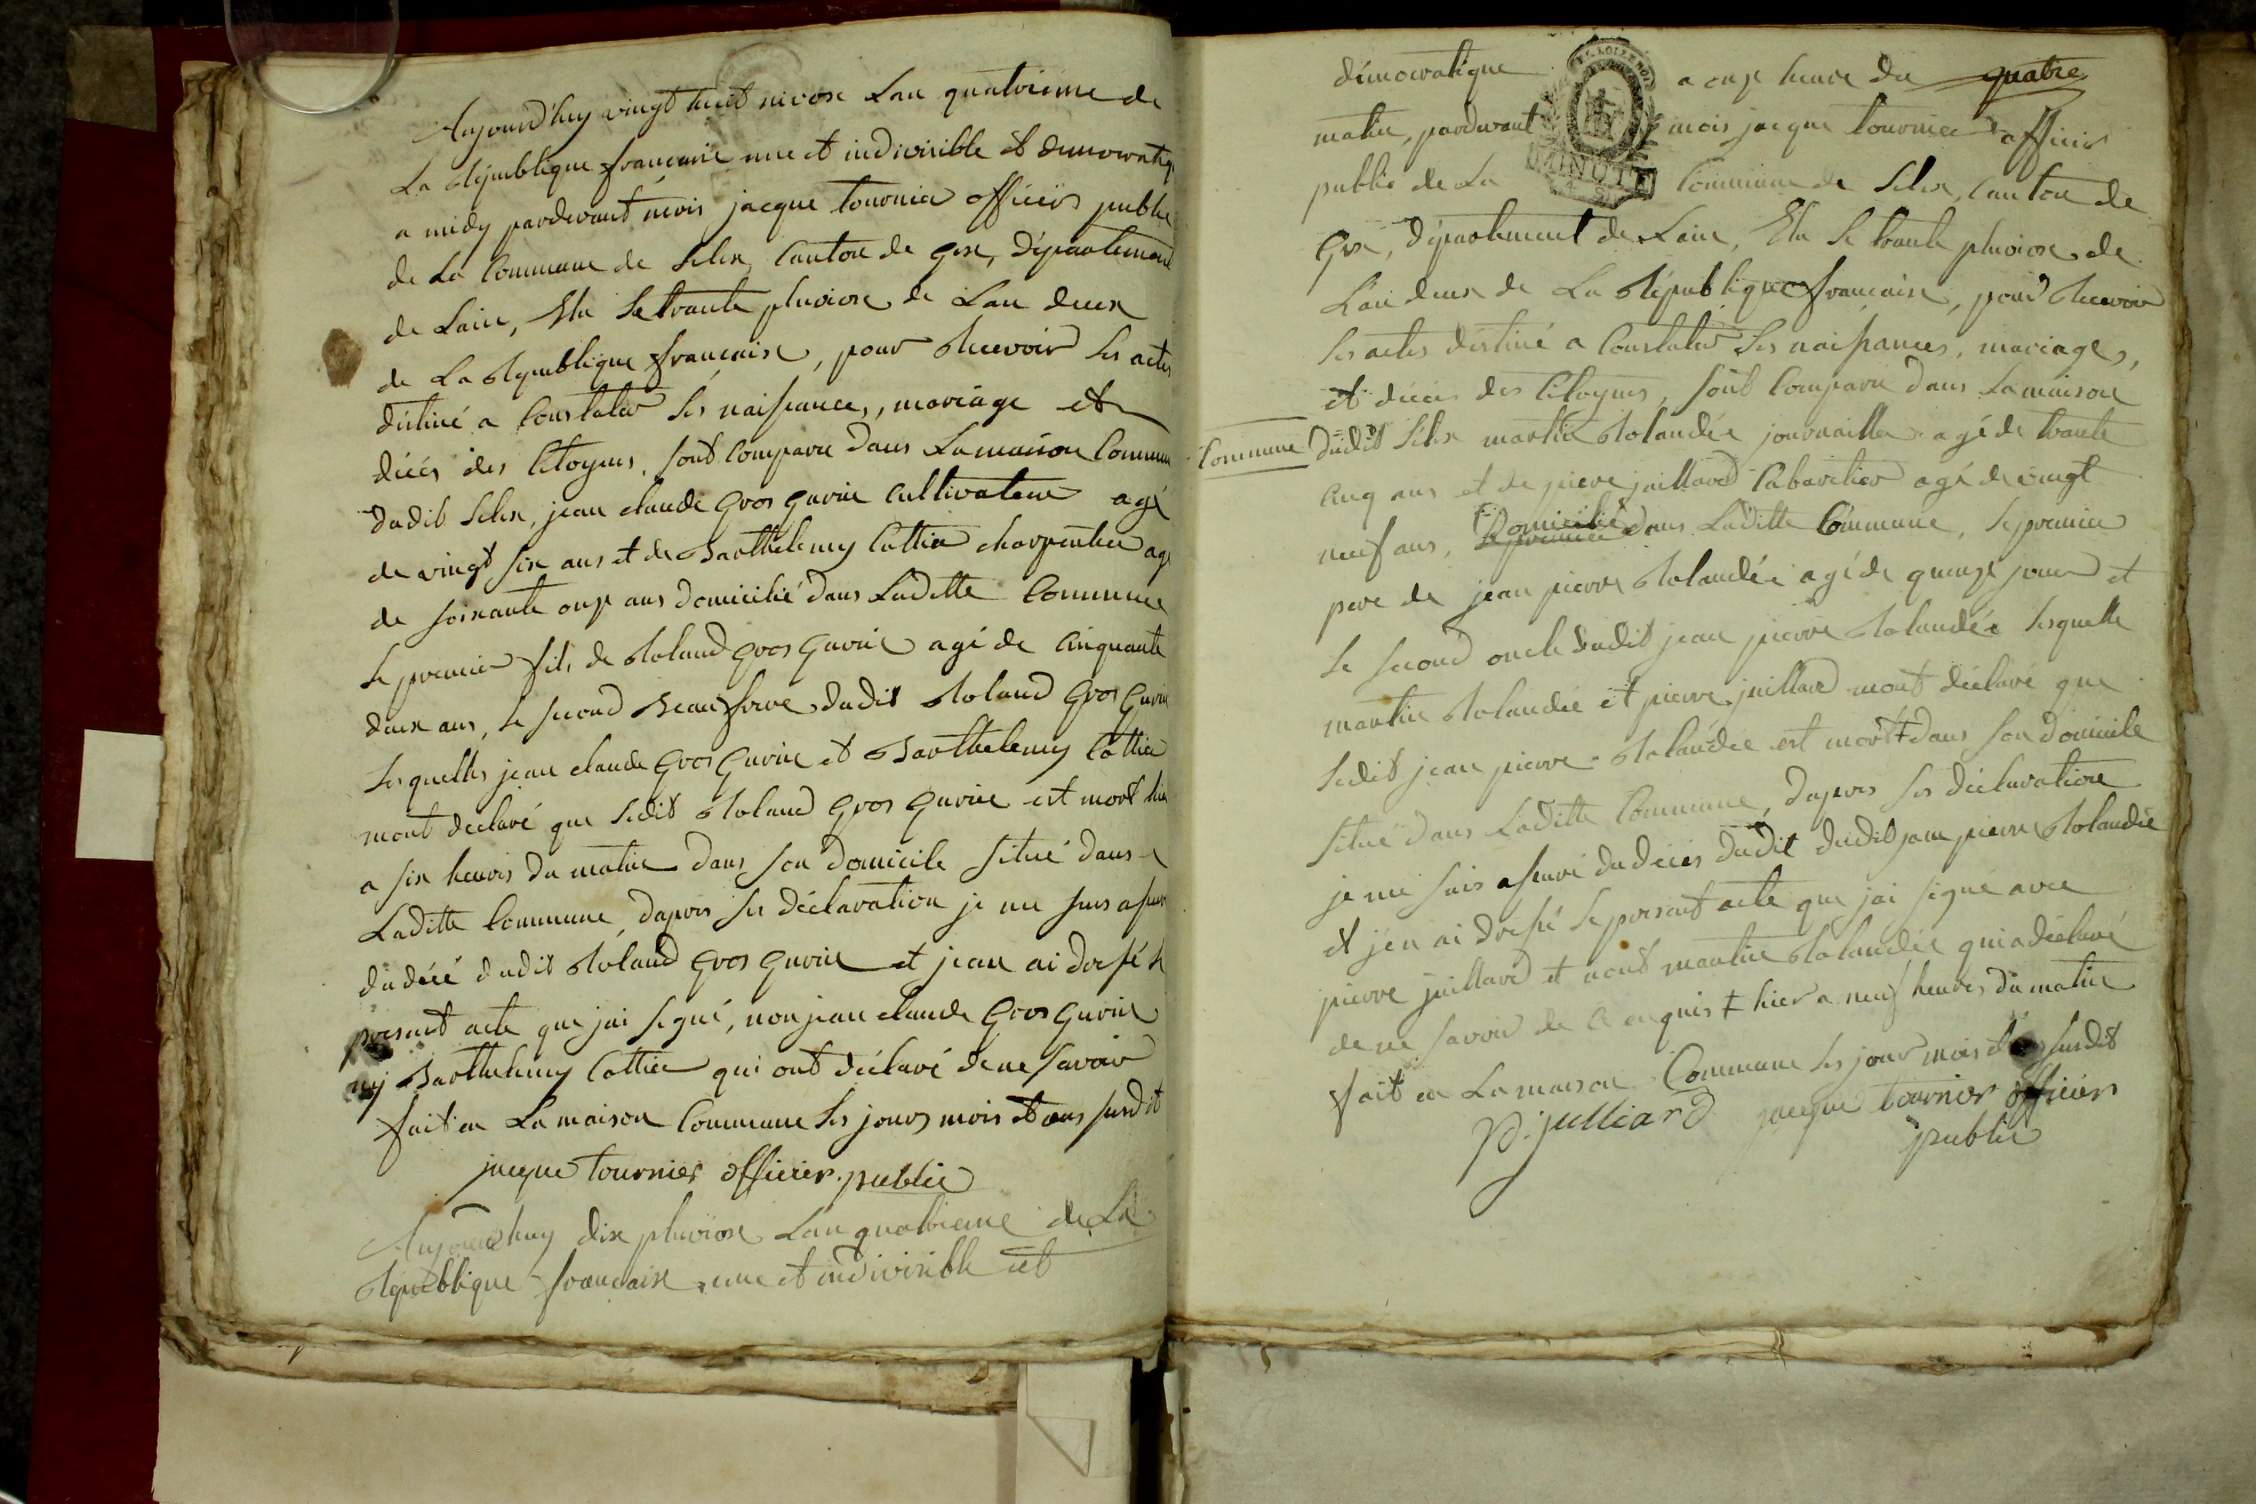 Aujourd'huy vingt huit nivose Lan quatrieme de
La Republique francaise une et indivisible et democratiq
a midy pardevant mois jacque tournier officiers public
de La Commune de Selex, Canton de Gex, Département
de Lain, Elu Le trante pluviose de Lan deux
de La Republique francaise, pour Recevoir Les actes
destiné a Constater Les naissances, mariage et
décés des Citoyens, sont Comparu dans La maison Commun
dudit Selex, jean claude Gros Gurin Cultivateur agé
de vingt six ans et de Barthelemy Cottier charpentier agé
de soixante onze ans domicilié dans Laditte Commune
Le premier fils de Roland Gros Gurin agé de Cinquante
deux ans, Le second Beaufrere dudit Roland Gros Gurin
Lesquelles jean claude Gros Gurin et Barthelemy Cottier
mont declaré que Ledit Roland Gros Gurin est mort hier
a six heures du matin dans son domicile situé dans
Laditte Commune, dapres Les déclaration je me suis assuré
du décé dudit Roland Gros Gurin et jean ai dressé le
present acte que jai signé, non jean claude Gros Gurin
nij Barthelemy Cottier qui ont déclaré de ne savoir
fait en La maison Commune Les jours mois et ans susdit
jacque tournier officier public
Aujourdhuy dix pluviose Lan quatrieme de La
Republique francaise, une et indivisible et
démocratique a onze heure du quatre
matin, pardevant mois jacque tournier officier
public de La Commune de Selex, Canton de
MINUTE
Gex, département de Lain, Elu Le trante pluviose de
Lan deux de La République francaise, pour Recevoir
Les actes destiné a Constater Les naissances, mariages,
et décés des Citoyens, sont Comparu dans La maison
Commune dudit Selex martin Rolandée journailler agé de trante
Cinq ans et de pierre juillard Cabaretier agé de vingt
neuf ans, Le premier Domicilié dans Laditte Commune, Le premier
pere de jean pierre Rolandée agé de quinze jours et
Le second oncle dudit jean pierre Rolandée Lesquelle
martin Rolandée et pierre juillard mont déclaré que
Ledit jean pierre Rolandée est mort + dans son domicile
situé dans Laditte Commune, dapres Les déclaration
je me suis assuré du décés dudit dudit jean pierre Rolandée
et jen ai dressé Le present acte que jai signé avec
pierre juillard et nont martin Rolandée qui a déclaré
de ne savoir de Ce enquis + hier a neuf heures du matin
fait en La maison Commune Les jour mois et susdit
P. julliard jacque tournier officiers
public